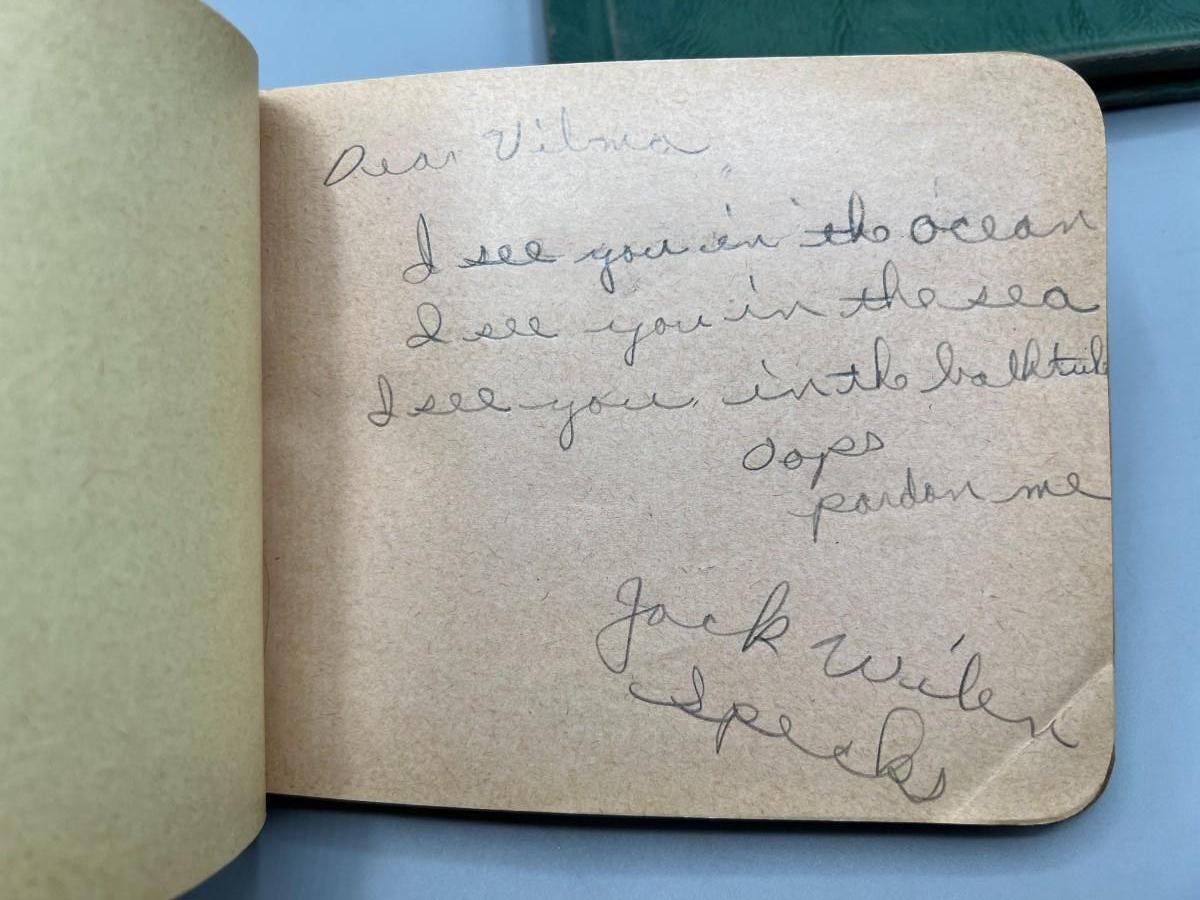 Dear Vilma
I see you in the ocean
I see you in the sea
I see you in the bathtub
Oops
pardon me
Jack Wilen
Specks